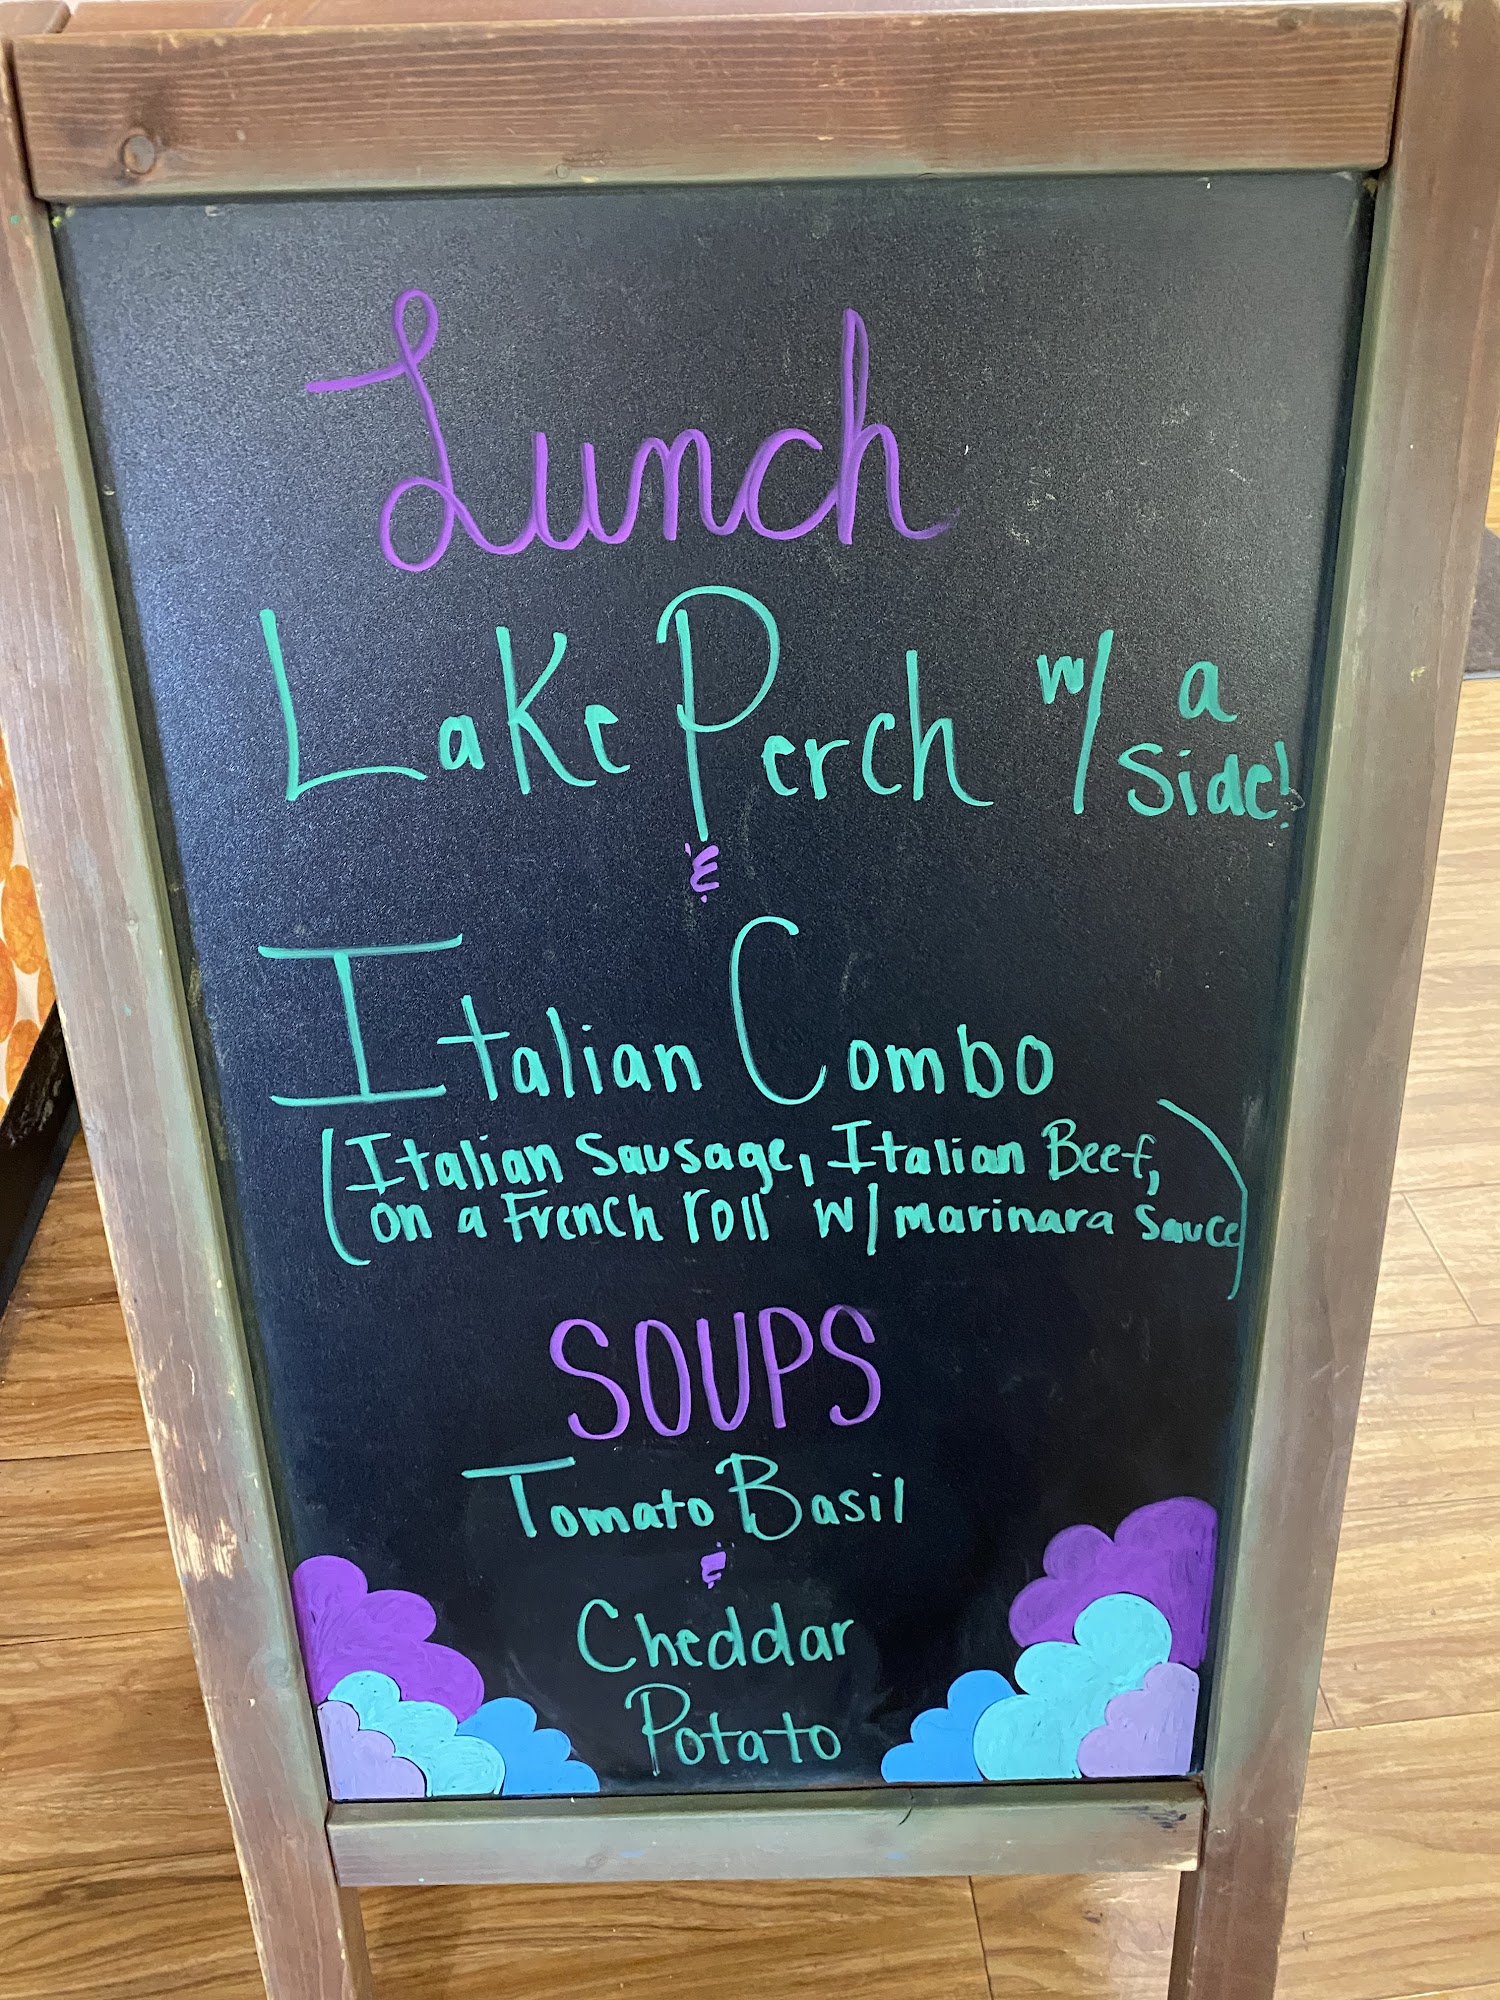 Lunch
Lake Perch w/ a
Side!
&
Italian Combo
(Italian Sausage, Italian Beef,
on a French roll w/ marinara sauce)
SOUPS
Tomato Basil
&
Cheddar
Potato